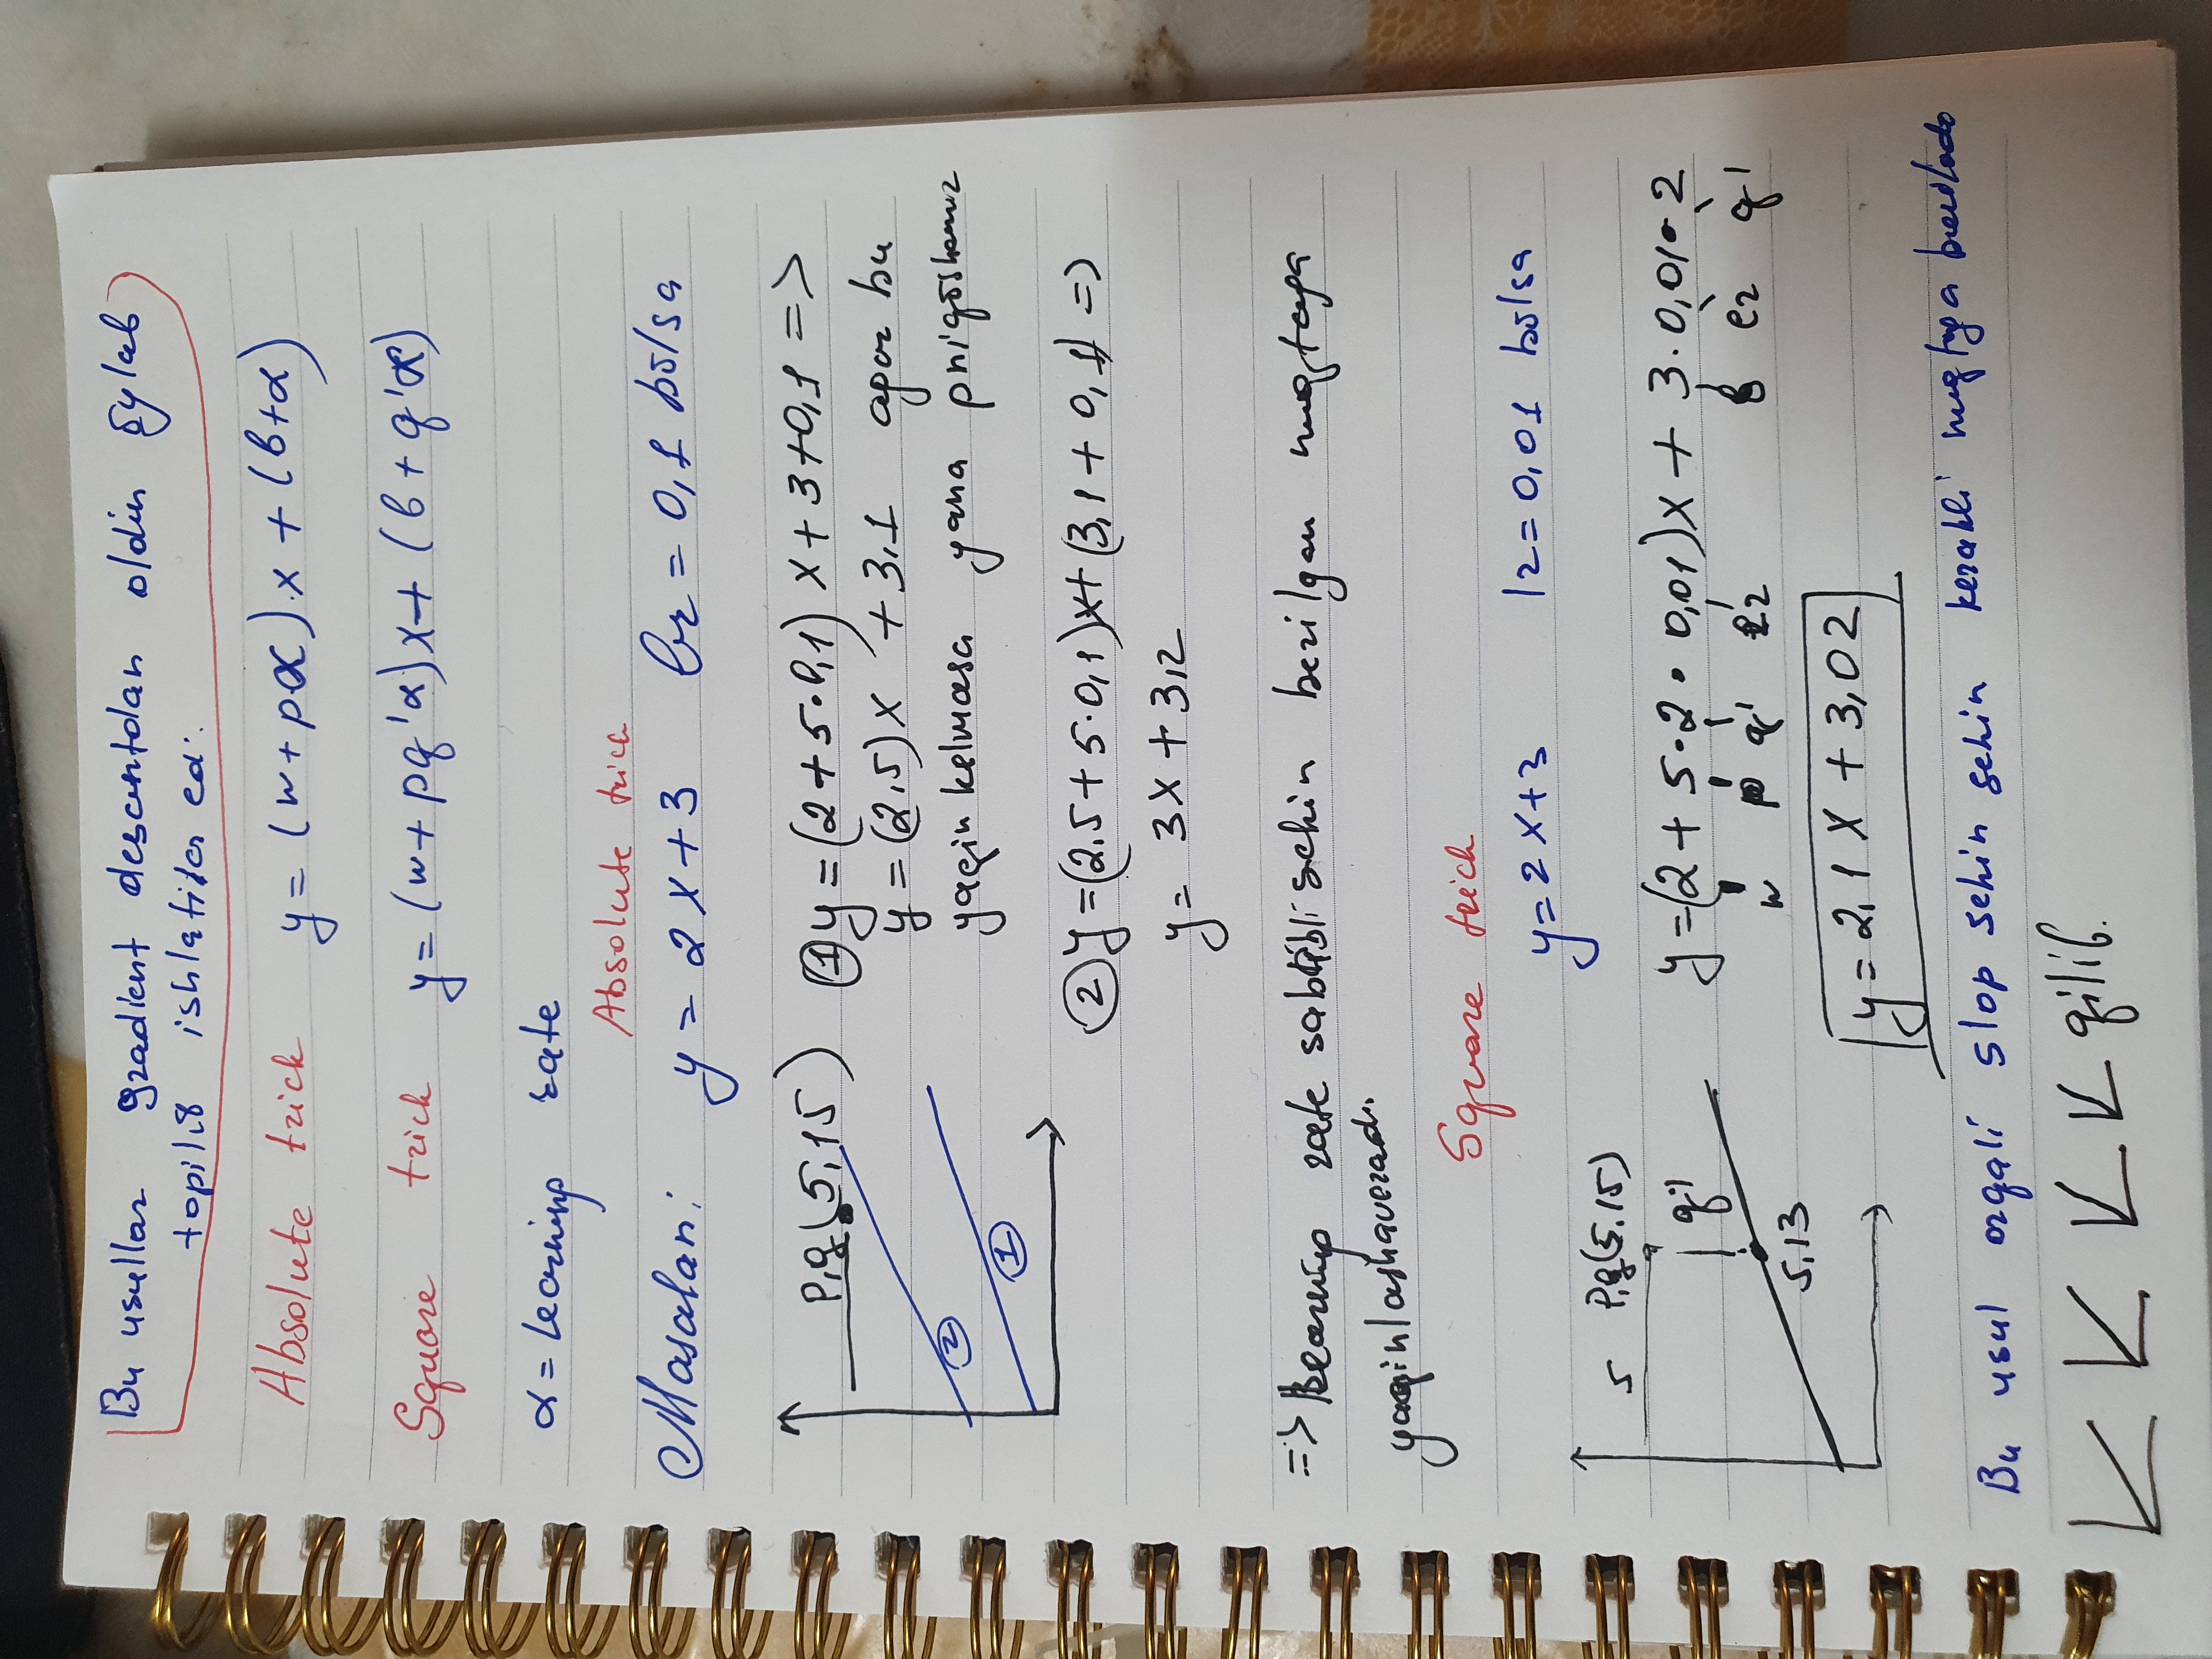 Bu usullar gradient descentdan oldin õylab
topilib ishlatilar edi.
Absolute trick y = (w + p·α)·x + (b+α)
Square trick y = (w + pq'α)x + (b + q'α)
α = learning rate
Absolute trick
Masalan: y = 2x+3 lr = 0,1 bõlsa
P,q(5,15)
① y = (2+5·0,1) x + 3+0,1 =>
y = (2,5)x + 3,1 agar bu
yaqin kelmasa yana qõshamiz
②
①
② y = (2,5 + 5·0,1)x + (3,1 + 0,1) =>
y = 3x + 3,2
=> learning rate sababli sekin berilgan nuqtaga
yaqinlashaveradi.
Square trick
y = 2x+3 lr = 0,01 bõlsa
5 P,q(5.15)
q'
y = (2 + 5·2·0,01)x + 3·0,01·2
w p q' lr b lr q'
5,13
y = 2,1x + 3,02
Bu usul orqali slop sekin sekin kerakli nuqtaga
qilib.